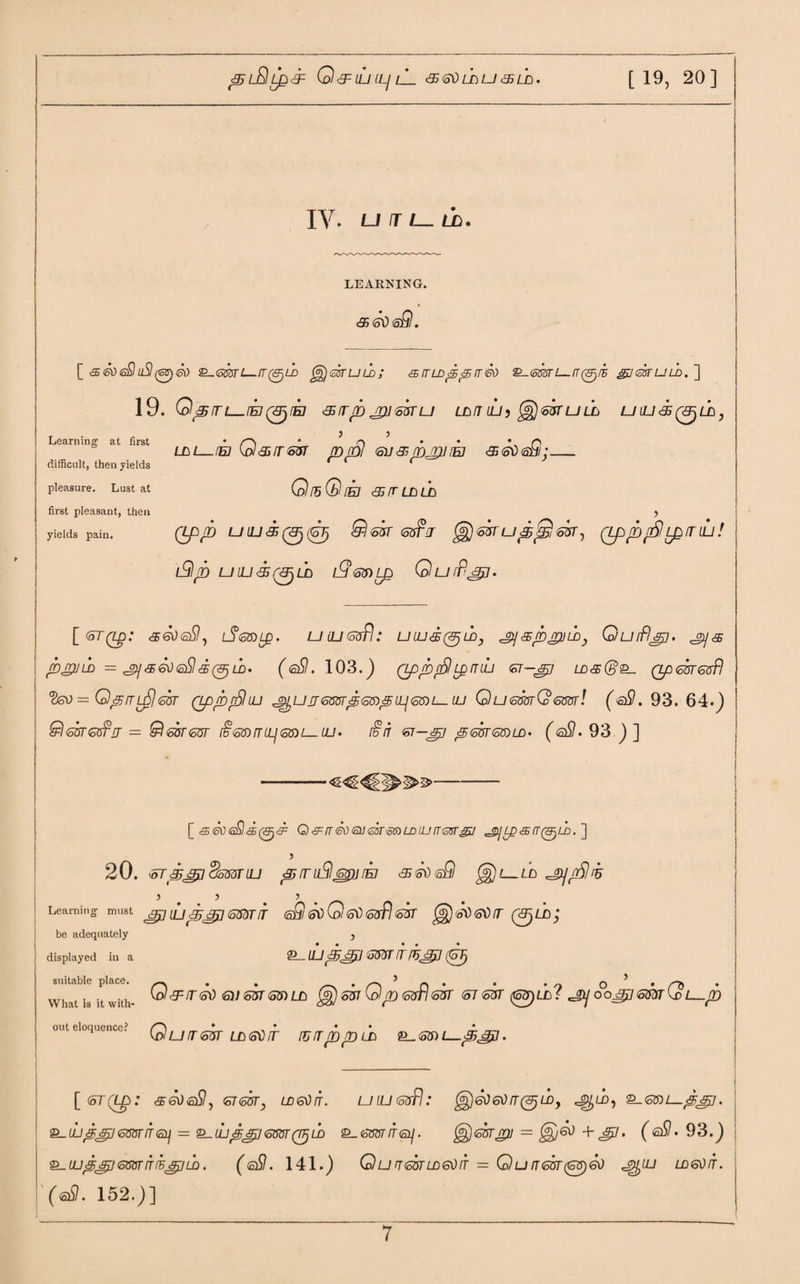 தமிழ்ச் செய்யுட் கலம்பகம். [ 19, 20]
IV. பாடம்.
LEARNING.
கல்வி.
[ கல்வியினால் உண்டாகும் இன்பம்; காமத்தால் உண்டாகுந் துன்பம். ]
19. தொடங்குங் காற் றுன்ப மாய், இன்பம் பயக்கும்,
Learning at first difficult, then yields pleasure. Lust at first pleasant, then yields pain.
மடங் கொன் றறி வகற்றுங் கல்வி;—
நெடுங் காமம்
முற் பயக்குஞ் சின் னீர இன்பத்தின், முற்றிழாய்!
பிற் பயக்கும் பீழை பெரிது.
[ எழு: கல்வி, பீழை. பயனி: பயக்கும், அகற்றும், பெரிது. அக
ற்றும் = அகலவிக்கும். (வி. 103.) முற்றிழாய் எ-து மகடூஉ முன்னி
லை = தொழின் முற்றிய ஆபரணத்தையுடைய பெண்ணே! (வி. 93. 64.)
சின்னீர = சின்ன நீரையுடைய. நீர் எ-து தன்மை. (வி. 93 ) ]
[ கல்விக்குச் சொல்வன்மையானது அழகாகும். ]
20. எத்துணைய தாயினுங் கல்வி இடம் அறிந்
Learning must be adequately displayed in a suitable place. What is it without eloquence?
துய்த்துணர் வில்லெனின் இல்லா கும்;
உய்த்துணர்ந்துஞ்
சொல் வன்மை இன்றெனின் என் னாம்? அஃதுண்டேற்
பொன் மலர் நாற்றம் உடைத்து.
[ எழு: கல்வி, என், மலர். பயனி: இல்லாகும், ஆம், உடைத்து.
உய்த்துணர்வு = உய்த்துணரும் உணர்வு. இன்று = இல் + து. (வி. 93.)
உய்த்துணர்ந்தும். (வி. 141.) பொன்மலர் = பொன்னால் ஆய மலர்.
(வி. 152.)]
7